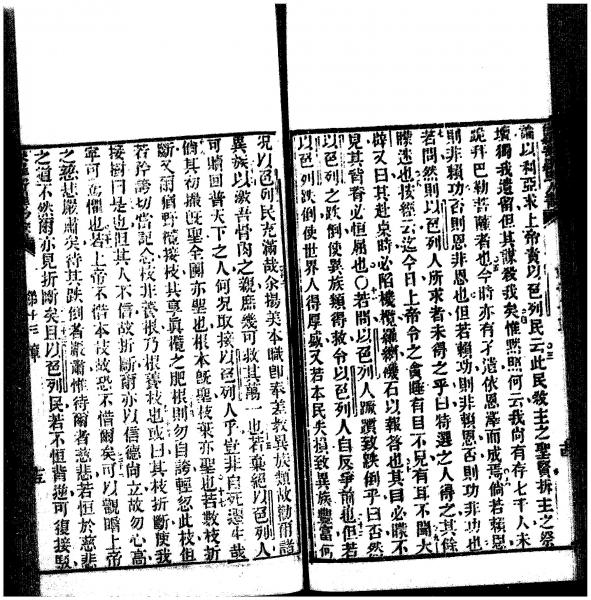 論以利亞求上帝責以色列民云此民殺主之聖賢拆主之祭
壇獨我遺留但其謀殺我矣惟黙照何云我尚有存七千人未
跪拜巴勒菩薩者也今時亦有矛遺依恩澤而成焉倘若賴恩
則非賴功否則恩非恩也但若賴功則非賴恩否則功非功也
若問然則以色列人所求者未得之乎曰特選之人得之其餘
矇迷也按經云迄今日上帝令之貪睡有目不見有耳不聞大
辟又曰其赴桌時必陷機檻羅網礙石以報答也其目必矇不
見其背脊必恒屈也〇若問以色列人蹶躓致跌倒乎曰否然
以色列之跌倒使異族類得救令以色列人自反爭前也但若
以色列跌倒使世界人得厚盛又若本民失損致異族豐富何
况以色列民充滿哉余揚美本職即奉差教異族類故勸爾諸
異族以激吾骨肉之親庶幾可救其萬一也若棄絕以色列人
可贖回普天下之人何況取接以色列人乎豈非自死還生哉
倘其初撒既聖全團亦聖也根本既聖枝葉亦聖也若數枝折
斷又爾猶野欖接枝其享眞欖之肥根則勿自誇輕忽此枝但
若矜誇切當記念枝非養根乃根養枝也或曰其枝折斷使我
接樹曰是也但其人不信故折斷爾亦以信德尚立故勿心高
寧可驚懼也若上帝不惜本枝故恐不惜爾矣可以觀瞻上帝
之慈悲嚴肅矣待其跌倒者嚴肅惟待爾者慈悲若恒於慈悲
之道不然爾亦見折斷矣且以色列民若不恒背逆可復接緊
第十三章